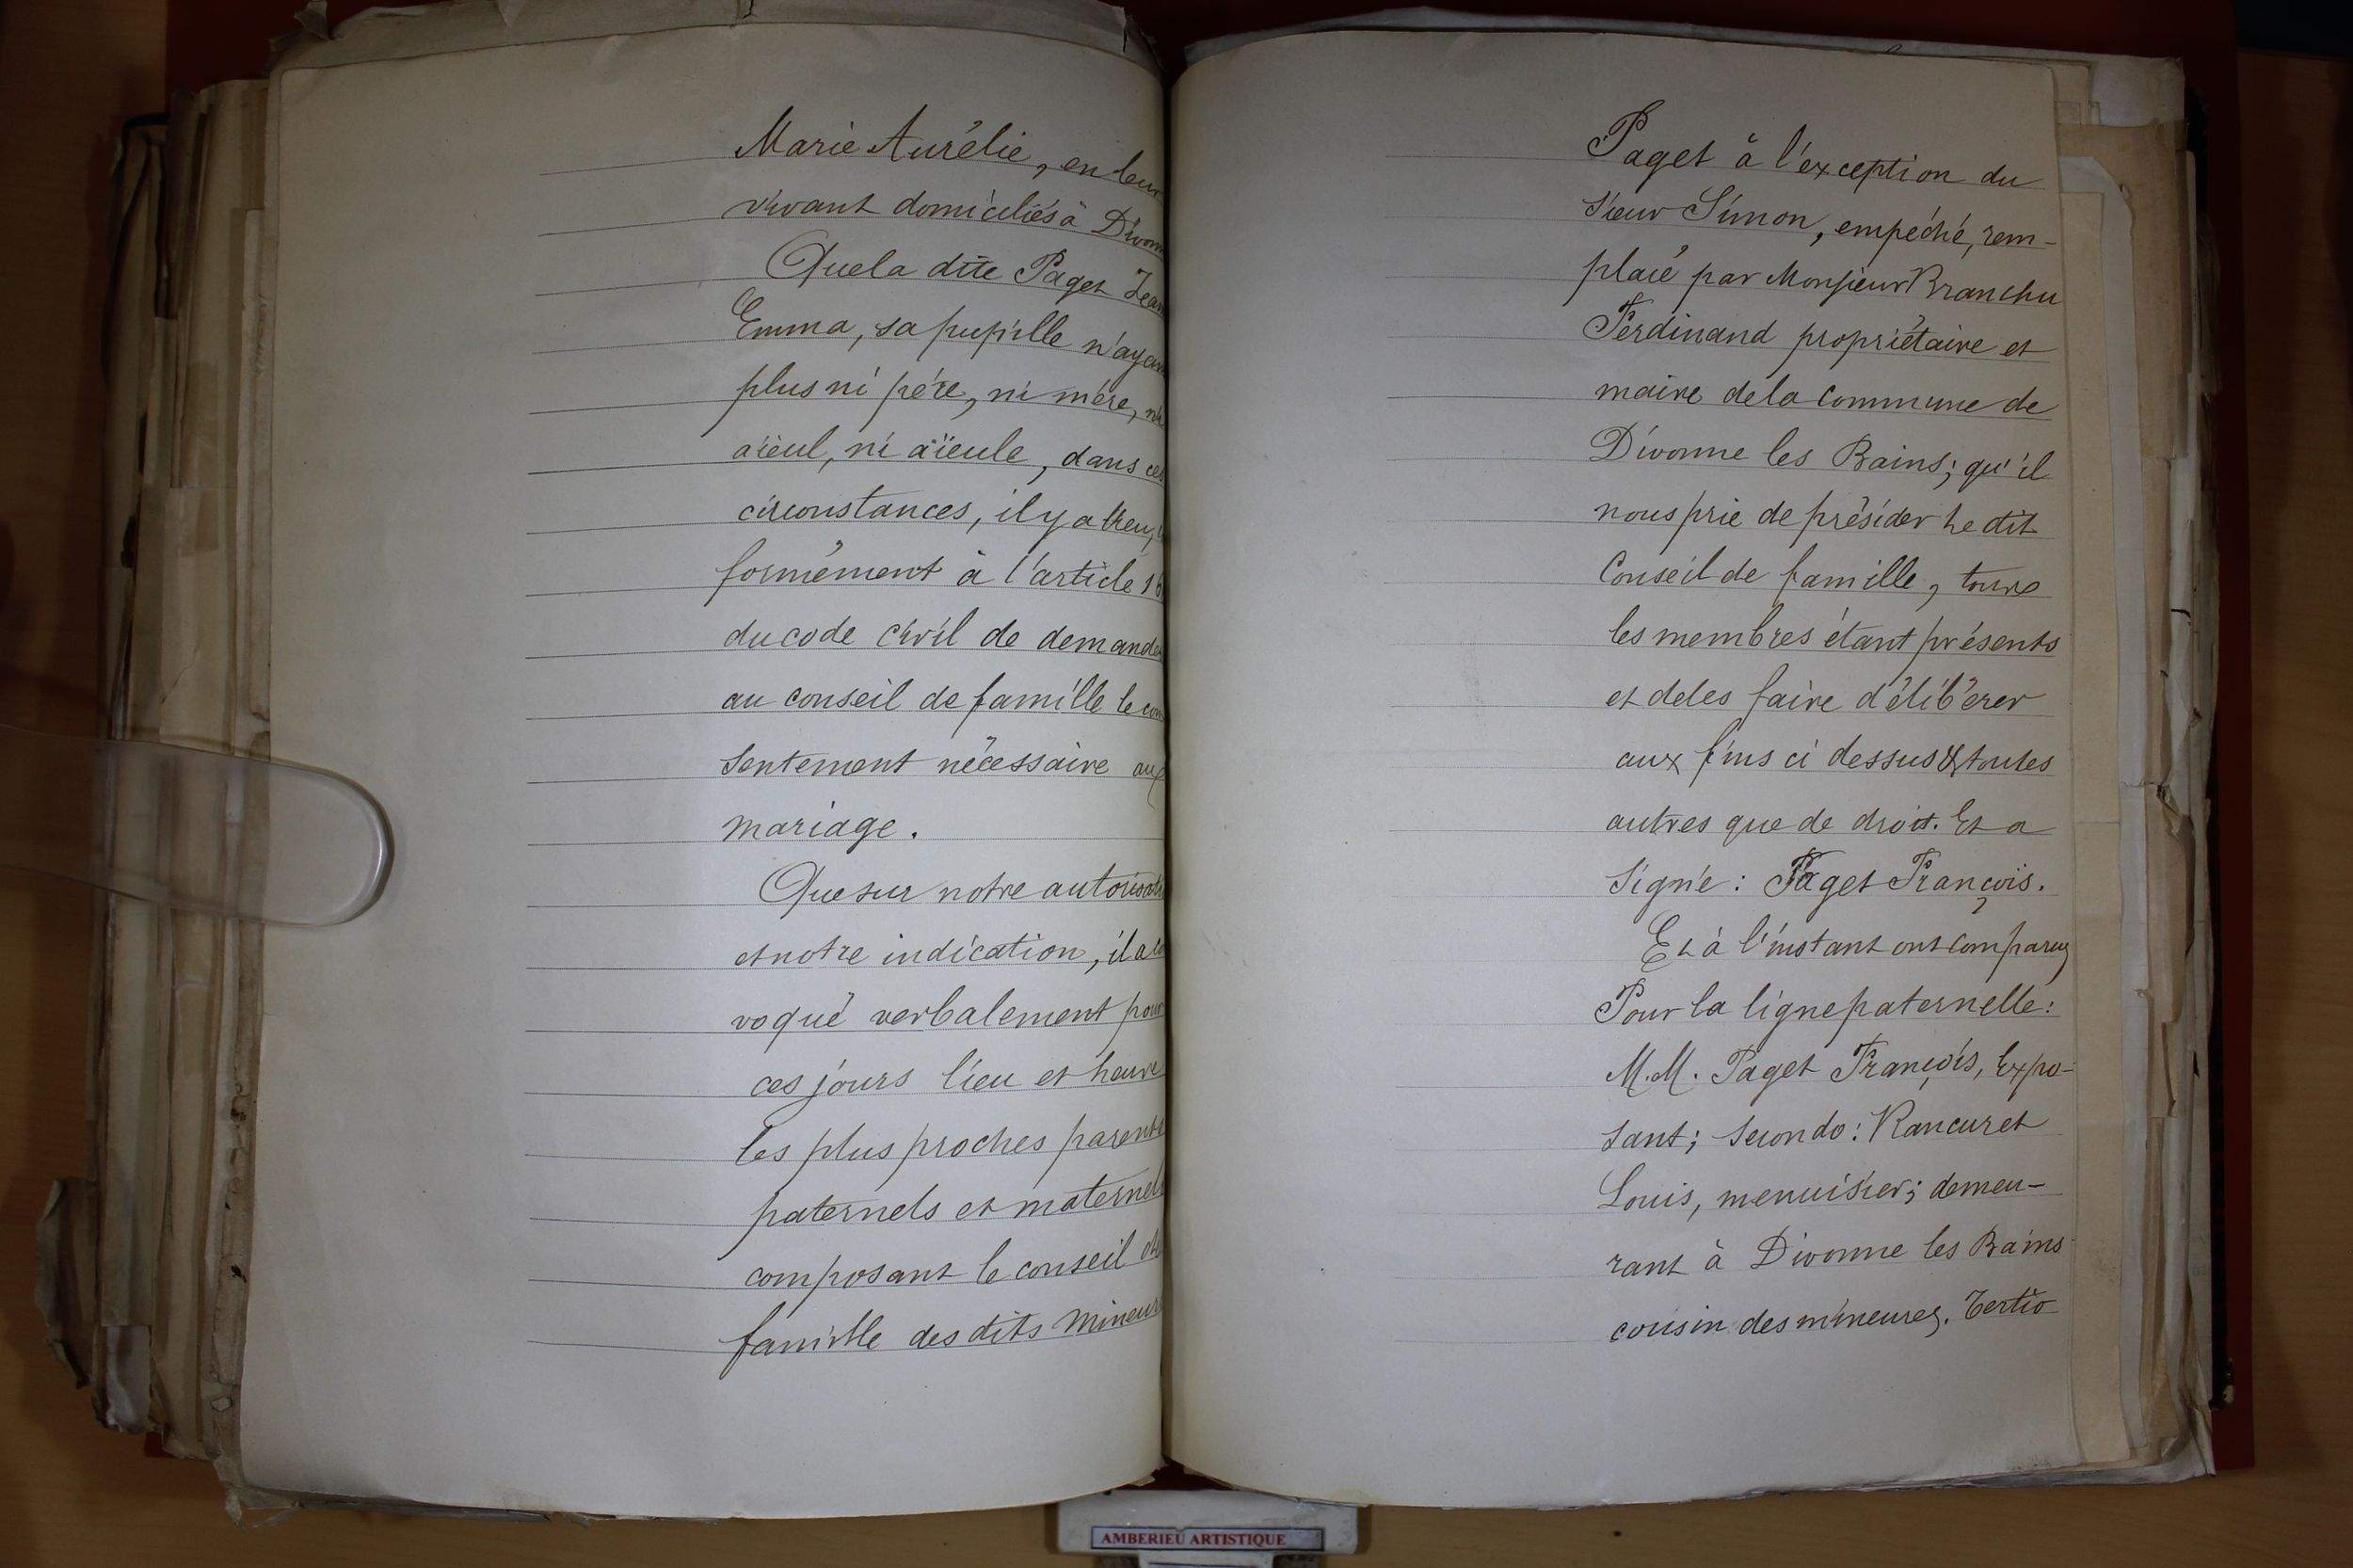 Marie Aurélie, en leur
vivant domiciliés à Divonne
Que la dite Paget Jeanne
Emma, sa pupille n'ayant
plus ni père, ni mère, ni
aïeul, ni aïeule, dans ces
circonstances, il y a lieu,
formément à l'article
du code civil de demander
au conseil de famille le con
sentement nécessaire au
mariage.
Que sur notre autorisation
et notre indication, il a con
voqué verbalement pour
ces jours lieu et heure
les plus proches parents
paternels et maternels
composant le conseil de
famille des dits mineurs
Paget à l'exception du
sieur Simon, empêché, rem-
placé par Monsieur Branchu
Ferdinand propriétaire et
maire de la commune de
Divonne les Bains; qu'il
nous prie de présider le dit
Conseil de famille, tous
les membres étant présents
et de les faire délibérer
aux fins ci dessus & toutes
autres que de droit. Et a
Signé: Paget François.
Et à l'instant ont comparu
Pour la ligne paternelle:
M.M. Paget François, Expo-
sant; Secondo: Rancuret
Louis, menuisier; demeu-
rant à Divonne les Bains
cousin des mineures. Tertio
AMBERIEU ARTISTIQUE